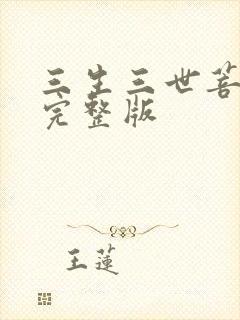 三生三世菩
完整版
王蓮